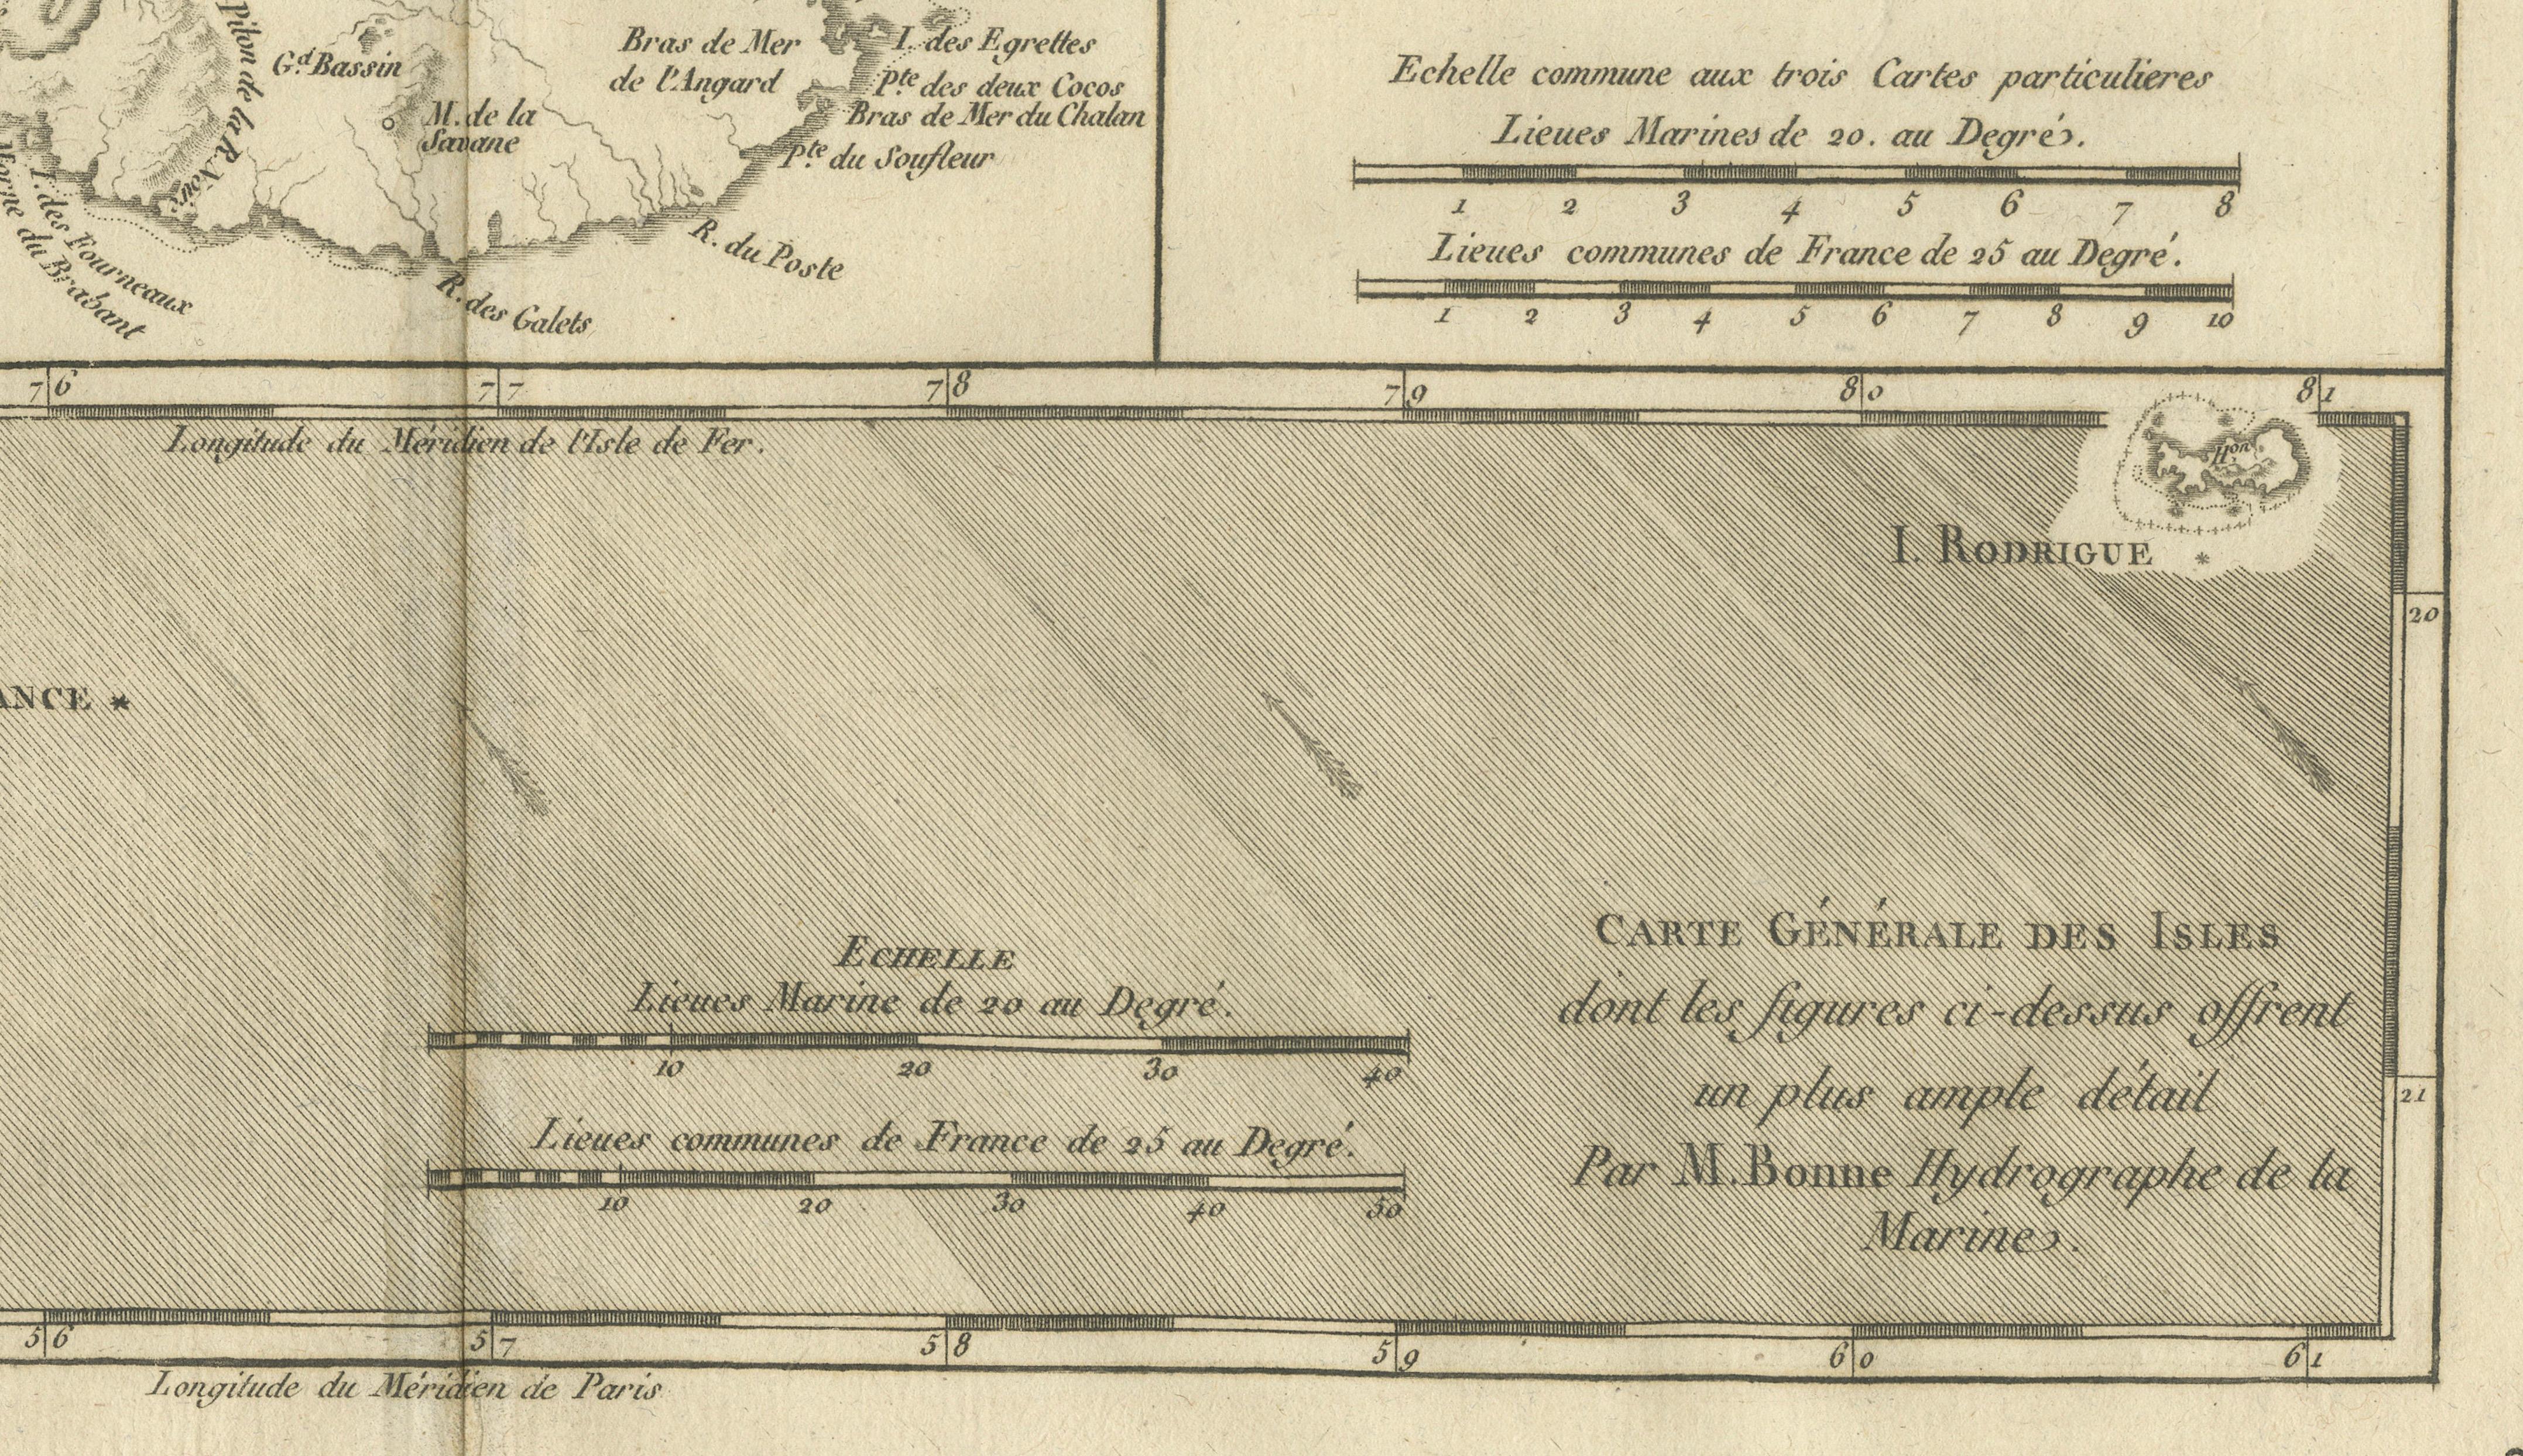 Piton de la R. Noire
G.d Bassin
M. de la
Savane
Bras de Mer
de l'Angard
I. des Egrettes
P.te des deux Cocos
Bras de Mer du Chalan
P.te du Soufleur
I. des Fourneaux
Morne du Brabant
R. du Poste
R. des Galets
Echelle commune aux trois Cartes particulieres
Lieues Marines de 20. au Degré.
1 2 3 4 5 6 7 8
Lieues communes de France de 25 au Degré.
1 2 3 4 5 6 7 8 9 10
76 77 78 79 80 81
Longitude du Méridien de l'Isle de Fer.
H.on
I. RODRIGUE *
20
ANCE *
CARTE GÉNÉRALE DES ISLES
dont les figures ci-dessus offrent
un plus ample détail
Par M. Bonne Hydrographe de la
Marine.
ECHELLE
Lieues Marine de 20 au Degré.
10 20 30 40
Lieues communes de France de 25 au Degré.
10 20 30 40 50
21
56 57 58 59 60 61
Longitude du Méridien de Paris